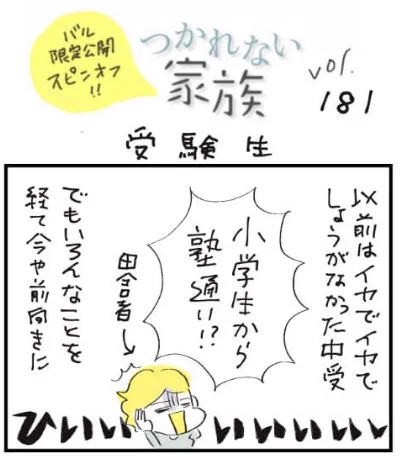 バル
限定公開
スピンオフ
!!
つかれない
家族
vol.
181
受験生
以前はイヤでイヤで
しょうがなかった中受
小学生から
塾通い!?
田舎者
でもいろんなことを
経て今や前向きに
ひいいいいいいいい